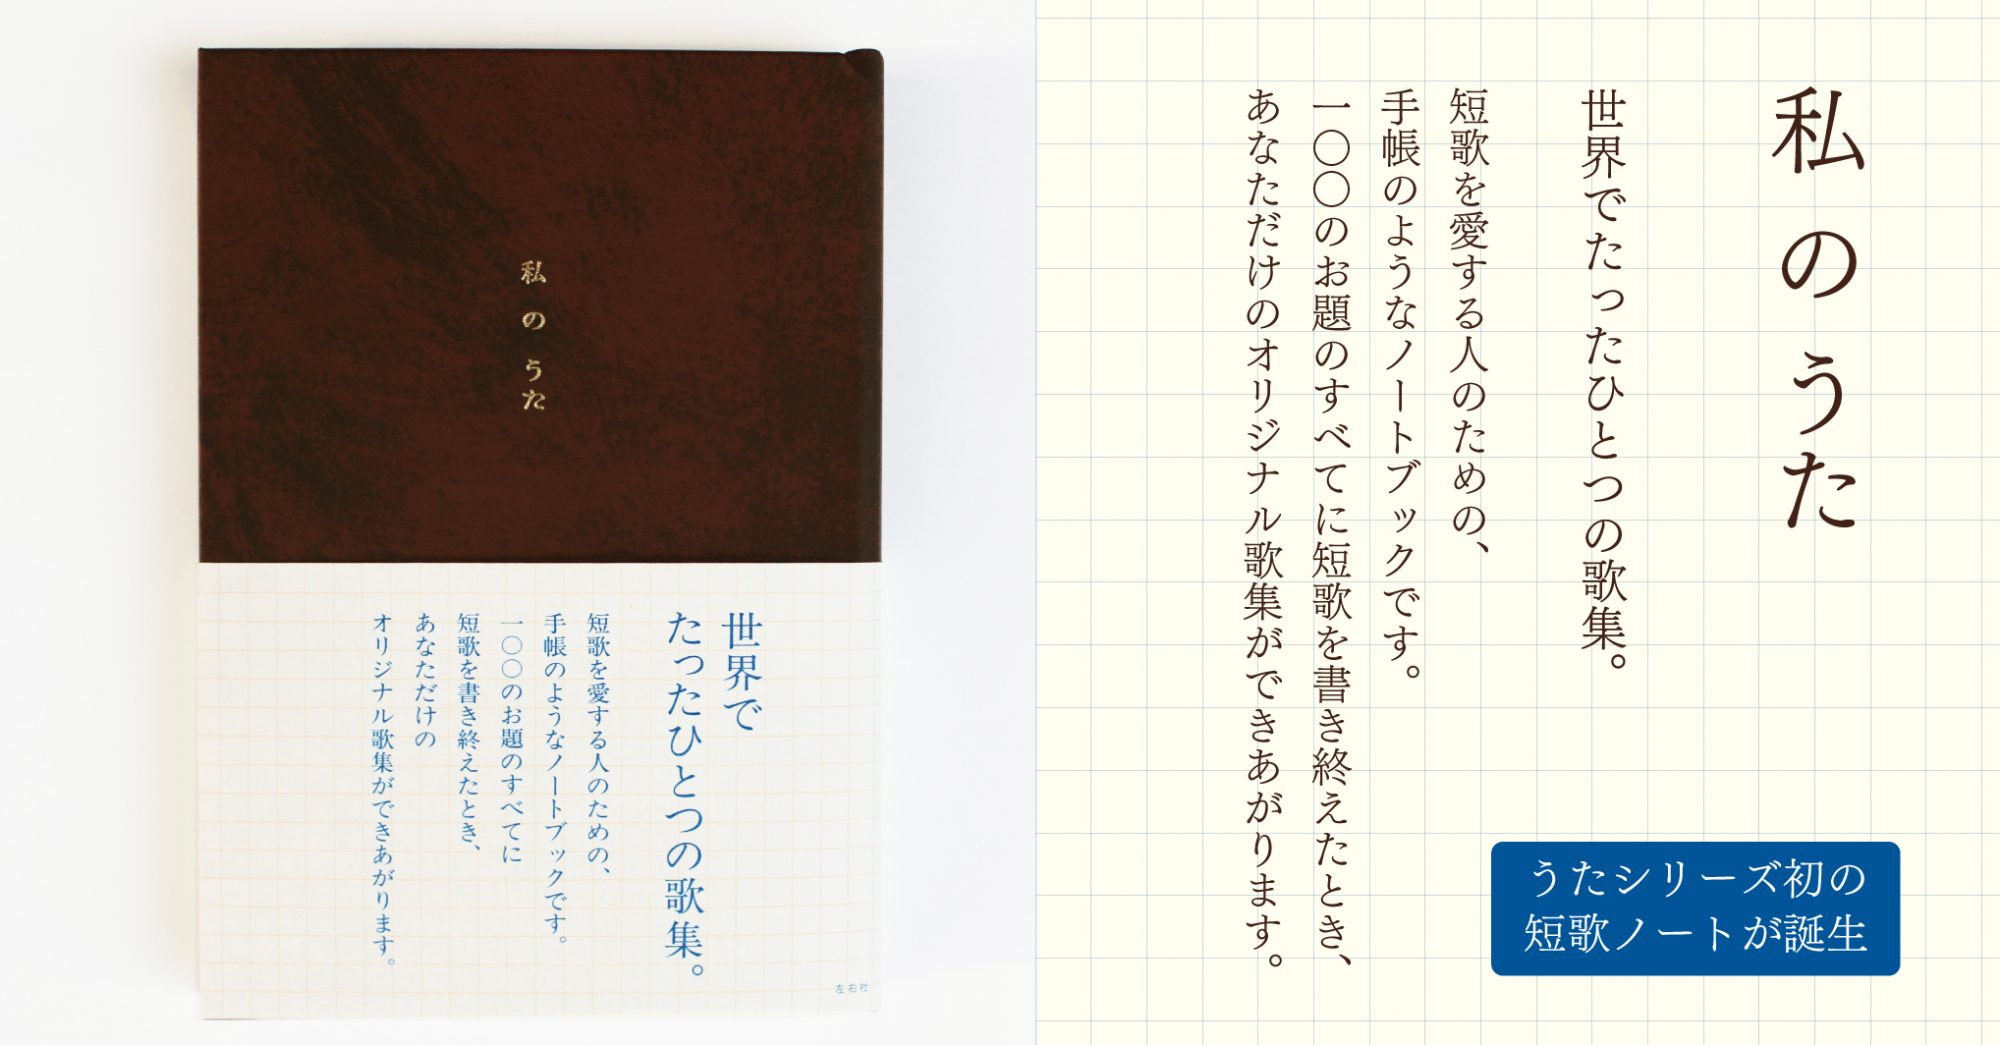 私のうた
世界で
たったひとつの歌集。
短歌を愛する人のための、
手帳のようなノートブックです。
一〇〇のお題のすべてに
短歌を書き終えたとき、
あなただけの
オリジナル歌集ができあがります。
左右社
私のうた
世界でたったひとつの歌集。
短歌を愛する人のための、
手帳のようなノートブックです。
一〇〇のお題のすべてに短歌を書き終えたとき、
あなただけのオリジナル歌集ができあがります。
うたシリーズ初の
短歌ノートが誕生